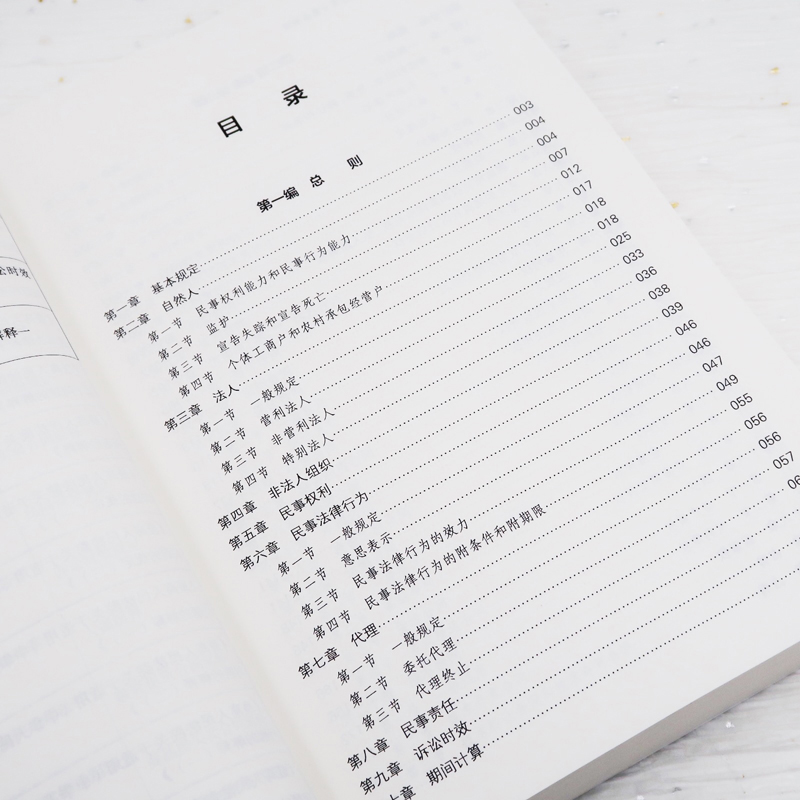 讼时效
释一
目 录
第一编 总 则
第一章 基本规定 003
第二章 自然人 004
第一节 民事权利能力和民事行为能力 004
第二节 监护 007
第三节 宣告失踪和宣告死亡 012
第四节 个体工商户和农村承包经营户 017
第三章 法人 018
第一节 一般规定 018
第二节 营利法人 025
第三节 非营利法人 033
第四节 特别法人 036
第四章 非法人组织 038
第五章 民事权利 039
第六章 民事法律行为 046
第一节 一般规定 046
第二节 意思表示 047
第三节 民事法律行为的效力 049
第四节 民事法律行为的附条件和附期限 055
第七章 代理 056
第一节 一般规定 056
第二节 委托代理 057
第三节 代理终止
第八章 民事责任
第九章 诉讼时效
十章 期间计算